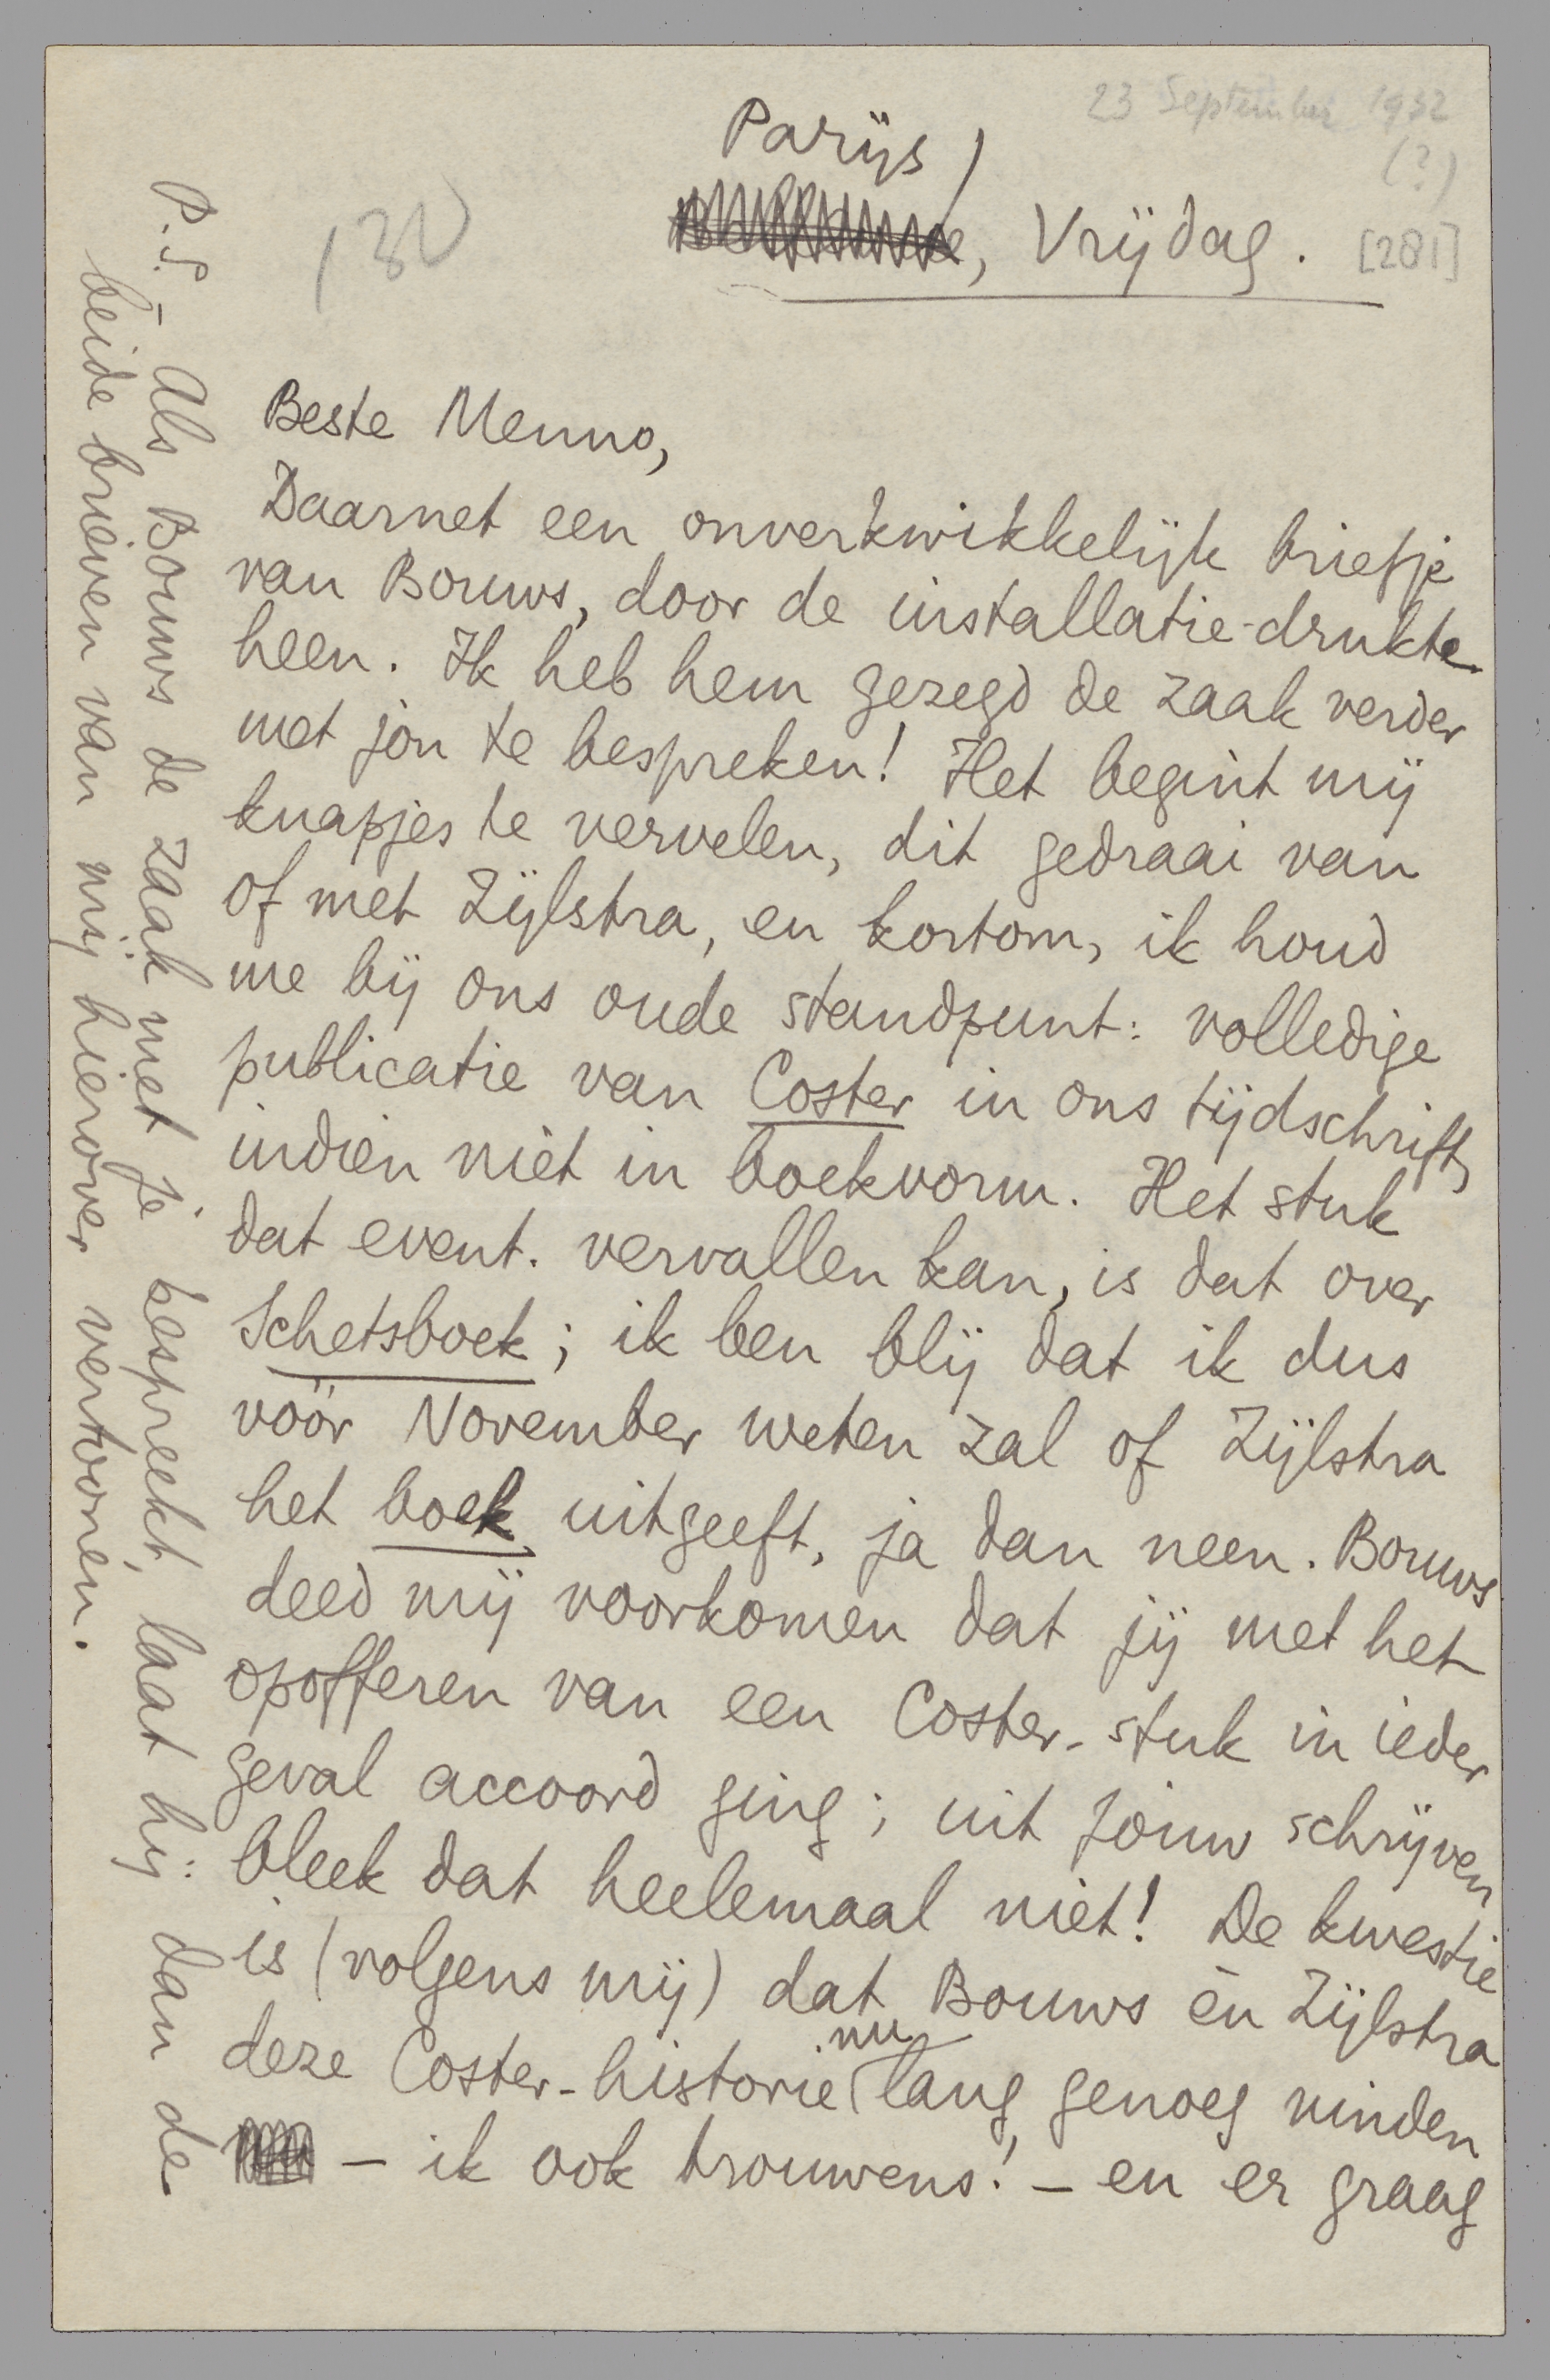 23 September 1932
(?)
[281]
Parijs,
, Vrijdag.
Beste Menno,
Daarnet een onverkwikkelijk briefje
van Bouws, door de installatie-drukte
heen. Ik heb hem gezegd de zaak verder
met jou te bespreken! Het begint mij
knapjes te vervelen, dit gedraai van
of met Zijlstra, en kortom, ik houd
me bij ons oude standpunt: volledige
publicatie van Coster in ons tijdschrift,
indien niet in boekvorm. Het stuk
dat event. vervallen kan, is dat over
Schetsboek; ik ben blij dat ik dus
vóór November weten zal of Zijlstra
het boek uitgeeft, ja dan neen. Bouws
deed mij voorkomen dat jij met het
opofferen van een Coster-stuk in ieder
geval accoord ging; uit jouw schrijven
bleek dat heelemaal niet! De kwestie
is (volgens mij) dat Bouws èn Zijlstra
deze Coster-historie nu lang genoeg vinden
– ik ook trouwens! – en er graag
P.S. – Als Bouws de zaak met je bespreekt, laat hij je dan de
beide brieven van mij hierover vertoonen.